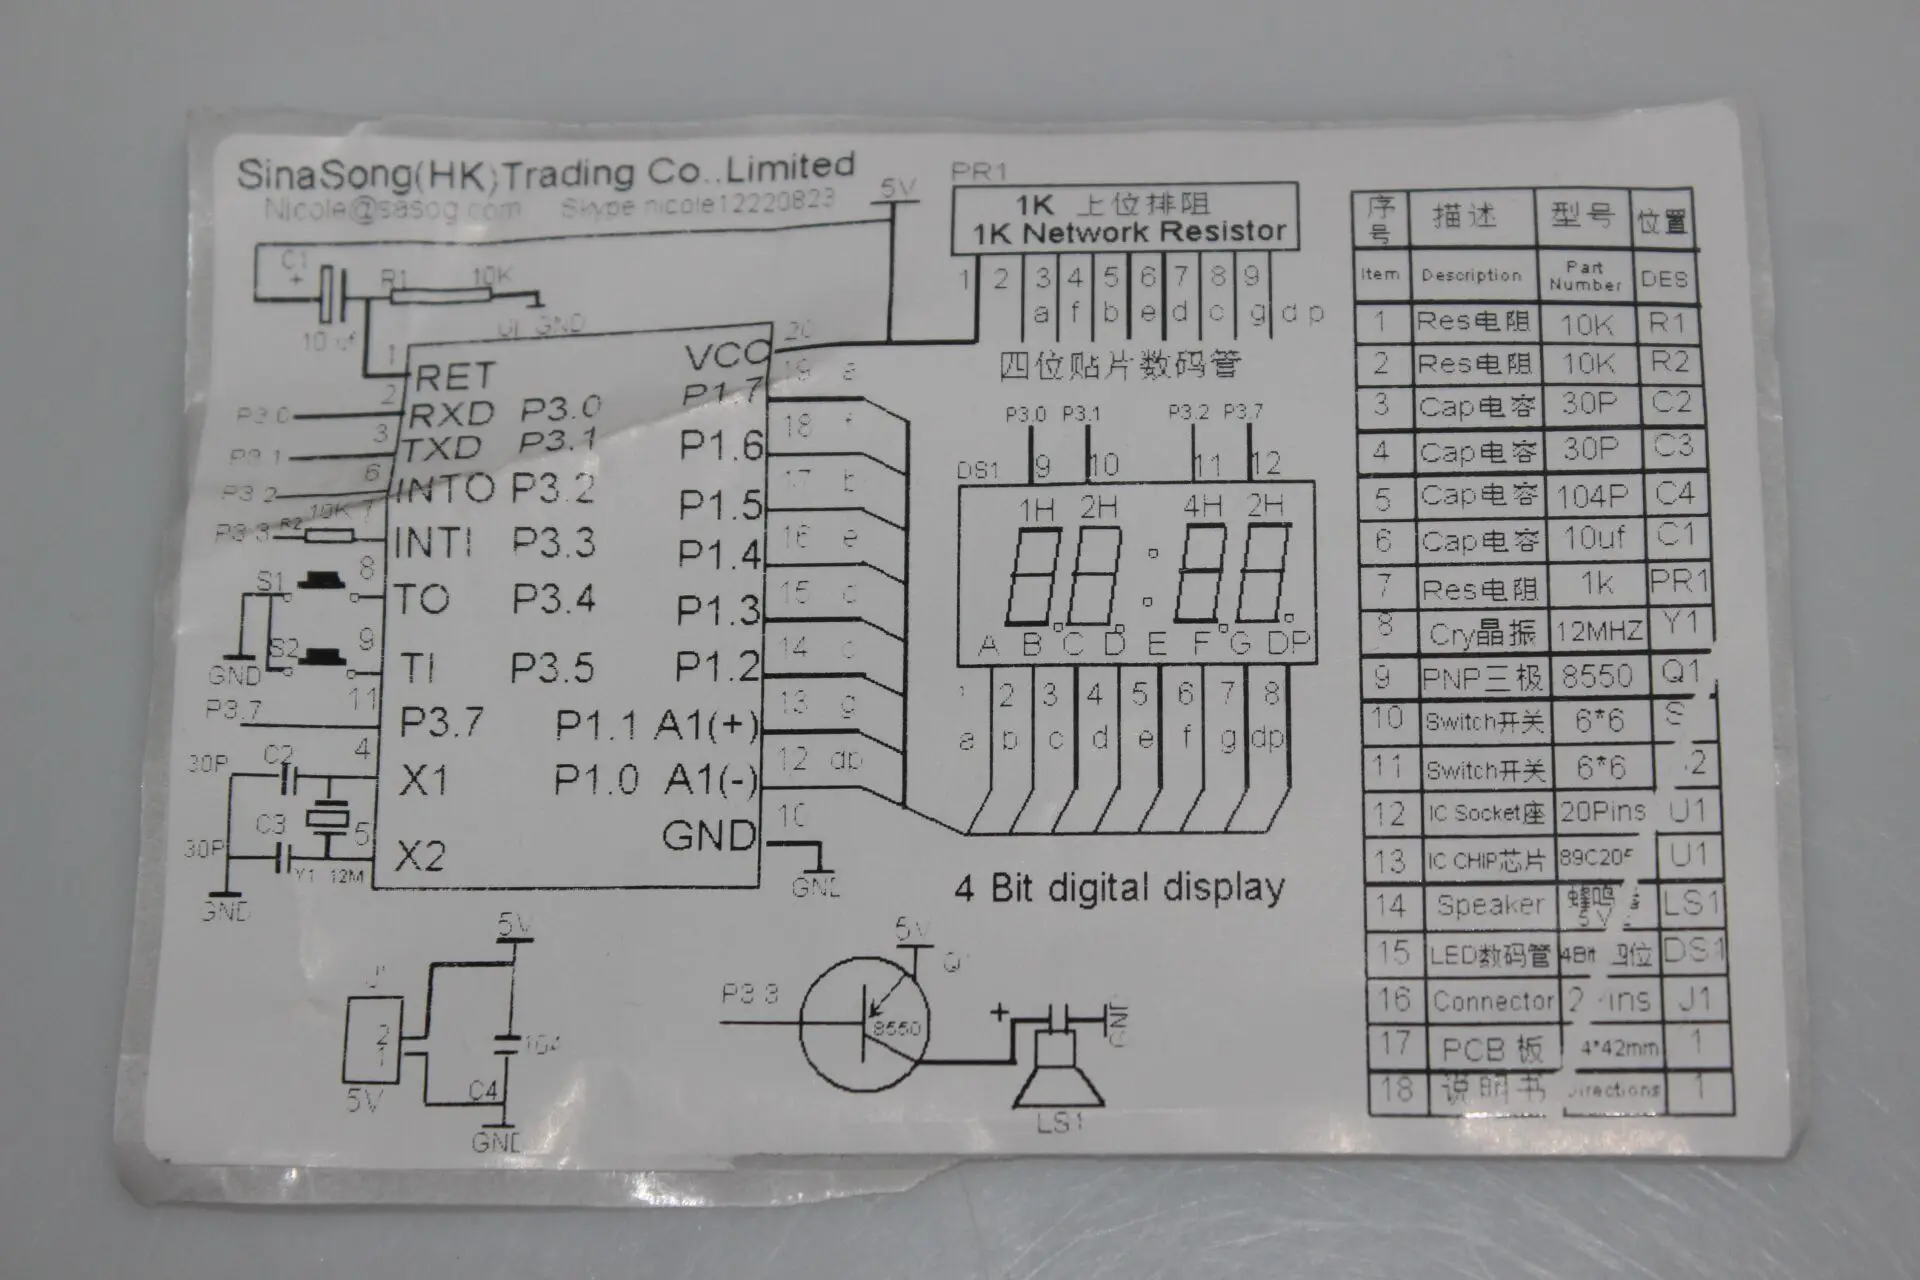 SinaSong(HK)Trading Co..Limited
Nicole@sasog.com Skype nicole12220823
5V
PR1
1K 上位排阻
1K Network Resistor
1 2 3 4 5 6 7 8 9
a f b e d c g d p
四位贴片数码管
C1
+
R1 10K
GND
RET
RXD P3.0
TXD P3.1
INTO P3.2
INTI P3.3
TO P3.4
TI P3.5
P3.7
X1
X2
VCC
P1.7
P1.6
P1.5
P1.4
P1.3
P1.2
P1.1 A1(+)
P1.0 A1(-)
GND
1
2
3
6
7
8
9
11
4
5
20
19 a
18 f
17 b
16 e
15 d
14 c
13 g
12 dp
10
GND
P3.0
P3.1
P3.2
P3.3 R2 10K
S1
S2
GND
P3.7
30P C2
C3
30P
Y1 12M
GND
P3.0 P3.1 P3.2 P3.7
DS1 9 10 11 12
1H 2H 4H 2H
A B C D E F G DP
1 2 3 4 5 6 7 8
a b c d e f g dp
4 Bit digital display
5V
2
1
5V
104
C4
GND
5V
P3.3
8550
+
GND
LS1
序号 描述 型号 位置
Item Description Part Number DES
1 Res电阻 10K R1
2 Res电阻 10K R2
3 Cap电容 30P C2
4 Cap电容 30P C3
5 Cap电容 104P C4
6 Cap电容 10uf C1
7 Res电阻 1k PR1
8 Cry晶振 12MHZ Y1
9 PNP三极 8550 Q1
10 Switch开关 6*6
11 Switch开关 6*6
12 IC Socket座 20Pins U1
13 IC CHIP芯片 U1
14 Speaker 5V LS1
15 LED数码管 4Bit DS1
16 Connector J1
17 PCB 板 1
18 说明书 1